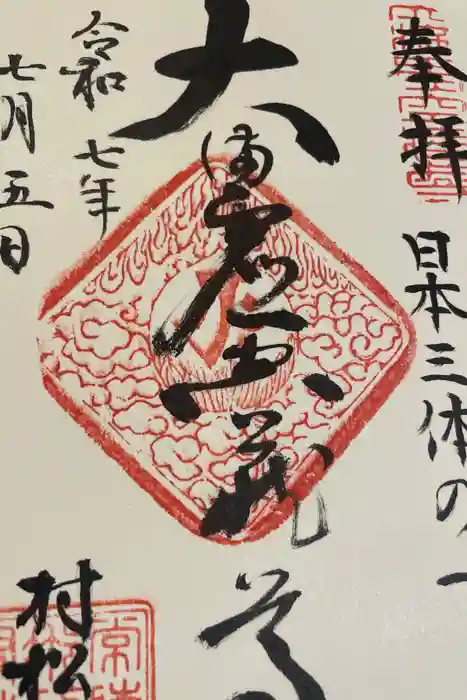 奉拝
日本三体の一
大満虚空蔵尊
令和七年
七月五日
村松